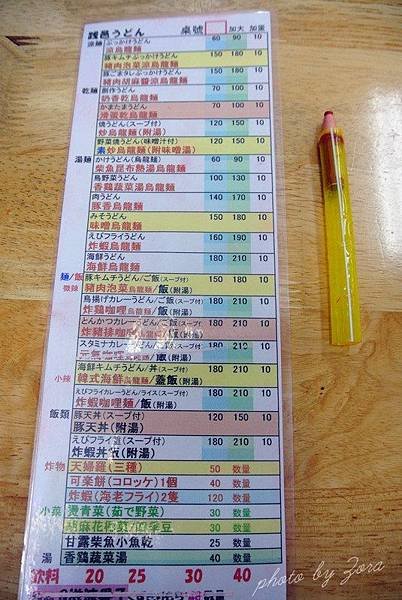 践邑うどん 桌號 加大 加蛋
涼麵 ぶっかけうどん 60 90 10
涼烏龍麵
豚キムチぶっかけうどん 150 180 10
豬肉泡菜涼烏龍麵
豚ごまタレぶっかけうどん 150 180 10
豬肉胡麻醬涼烏龍麵
乾麵 創作うどん 70 100 10
奶香乾烏龍麵
かまたまうどん 70 100 10
滑蛋乾烏龍麵
焼うどん(スープ付) 120 150 10
炒烏龍麵(附湯)
野菜焼うどん(味噌汁付) 120 150 10
素炒烏龍麵(附味噌湯)
湯麵 かけうどん(烏龍麵) 60 90 10
柴魚昆布熱湯烏龍麵
鳥野菜うどん 100 130 10
香鷄蔬菜湯烏龍麵
肉うどん 140 170 10
豚香烏龍麵
みそうどん 150 180 10
味噌烏龍麵
えびフライうどん 160 190 10
炸蝦烏龍麵
海鮮うどん 180 210 10
海鮮烏龍麵
麵/飯 豚キムチうどん/ご飯(スープ付) 150 180 10
微辣 豬肉泡菜烏龍麵/飯(附湯)
鳥揚げカレーうどん/ご飯(スープ付) 180 210 10
炸鷄咖哩烏龍麵/飯(附湯)
とんかつカレーうどん/ご飯(スープ付 180 210 10
炸豬排咖哩/飯(附湯)
スタミナカレーうどん/ご飯(スープ付 180 210 10
元氣咖哩/飯(附湯)
海鮮キムチうどん/丼(スープ付) 180 210 10
小辣 韓式海鮮烏龍麵/蓋飯(附湯)
えびフライカレーうどん/ライス(スープ付) 180 210 10
炸蝦咖哩麵/飯(附湯)
飯類 豚天丼(スープ付) 120 150 10
豚天丼(附湯)
えびフライ(スープ付) 180 210 10
炸蝦丼飯(附湯)
炸物 天婦羅(三種) 50 數量
可楽餅(コロッケ)1個 40 數量
炸蝦(海老フライ)2隻 120 數量
小菜 燙青菜(茹で野菜) 30 數量
30 數量
甘露柴魚小魚乾 25 數量
湯 香鷄蔬菜湯 40 數量
飲料 20 25 30 40
photo by Zora